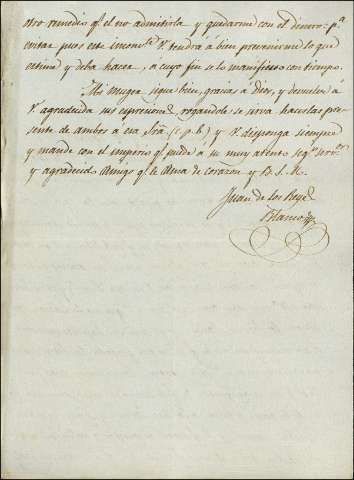 otro remedio q.e el no admitirla y quedarme con el dinero: p.a
evitar pues este inconv.te V. tendrá á bien prevenirme lo que
estime y deba hacer, a cuyo fin se lo manifiesto con tiempo.
Mi muger sigue bien, gracias a Dios, y devuelve á
V. agradecida sus expresiones, rogandole se sirva hacerlas pre-
sente de ambos a esa Sra (c. p. b.) y V. disponga siempre
y mande con el imperio q.e puede á su muy atento seg.o serv.or
y agradecido Amigo q.e le Ama de corazon y B. S. M.
Juan de los Reyes
Blanco